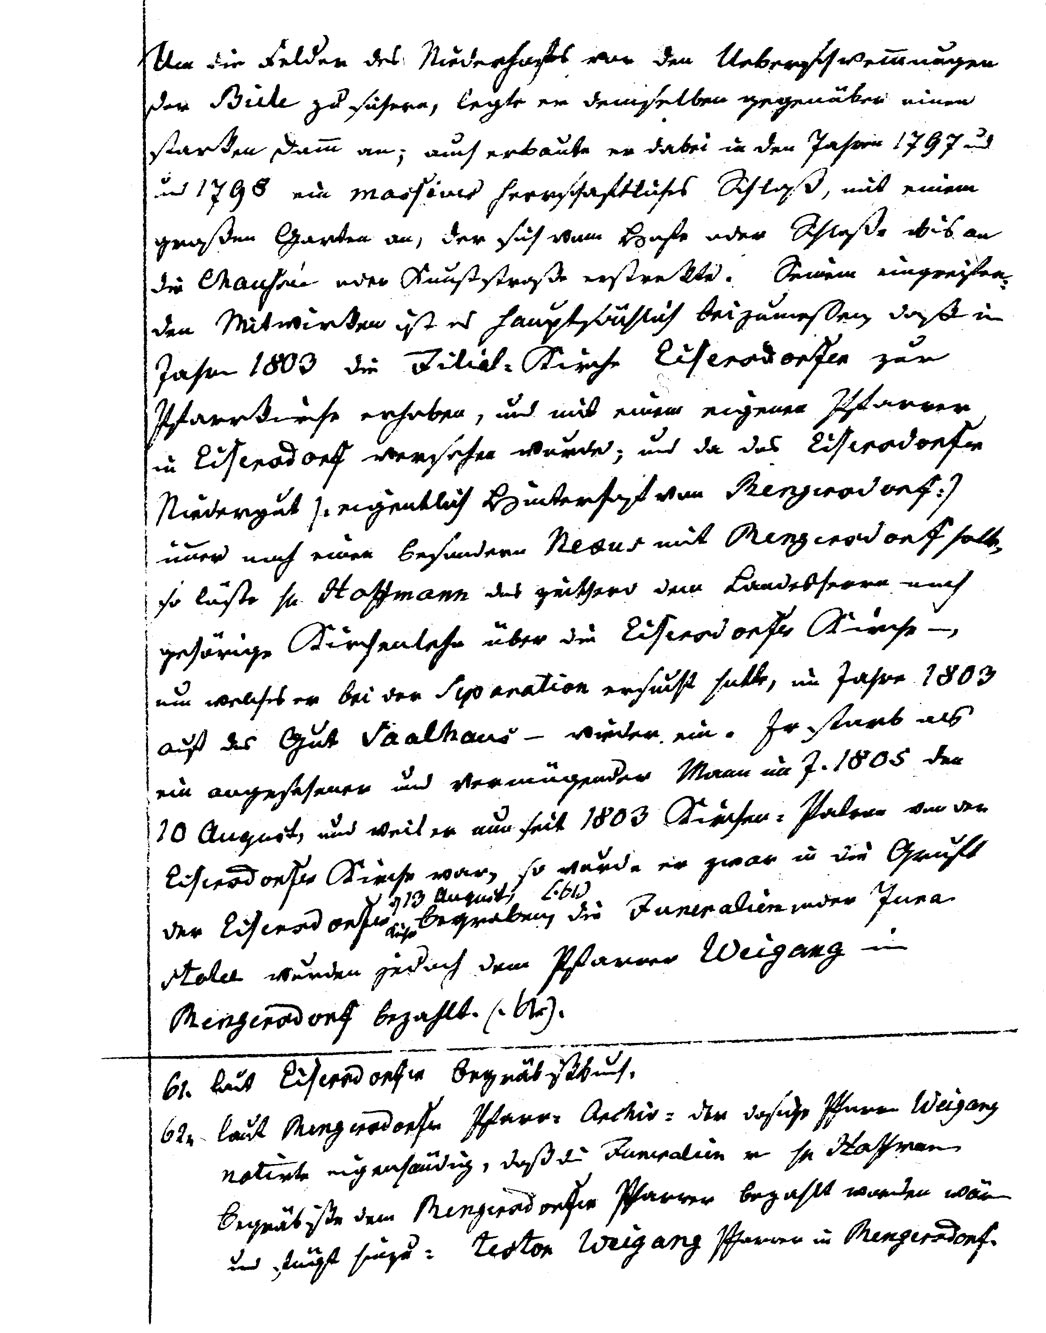 Um die Felder des Niederhofes vor den Ueberschwem̅ungen
der Biele zu sichern, legte er demselben gegenüber einen
starken Dam̅ an; auch erbaute er dabei in den Jahren 1797 und
und 1798 ein massives herrschaftliches Schloß, mit einem
großen Garten an, der sich vom Hofe oder Schloße bis an
die Chaussée oder Kunststraße erstrekte. Seinem eingreifen-
den Mitwirken ist es hauptsächlich beizumessen, daß im
Jahre 1803 die Filial-Kirche Eisersdorfer zur
Pfarrkirche erhoben, und mit einem eigenen Pfarrer
in Eisersdorf versehen wurde; und da das Eisersdorfer
Niedergut (: eigentlich Hinterhof von Rengersdorf :)
im̅er noch einen besondern Nexus mit Rengersdorf hatte,
so löste H. Hoffmann das dem Landesherrn noch
gehörige Kirchenlehn über die Eisersdorfer Kirche —,
um welches er bei der Separation ersucht hatte, im Jahre 1803
auf das Gut Saalhaus — wieder ein. Er starb als
ein angesehener und vermögender Mann im J. 1805 den
10 August, und weil er nun seit 1803 Kirchen-Patron von der
Eisersdorfer Kirche war, so wurde er zwar in die Gruft
der Eisersdorfer Kirche d 13 August begraben, (.61.) die Funeralien oder Jura
stolae wurden jedoch dem Pfarrer Weigang in
Rengersdorf bezahlt. (. 62.).
61. laut Eisersdorfer Begräbnißbuch.
62. laut Rengersdorfer Pfarr-Archiv: der dasige Pfarrer Weigang
notirte eigenhändig, daß die Funeralien H. Hoffmann
Begräbniße dem Rengersdorfer Pfarrer bezahlt worden wären
und fügt hinzu: testor Weigang Pfarrer in Rengersdorf.